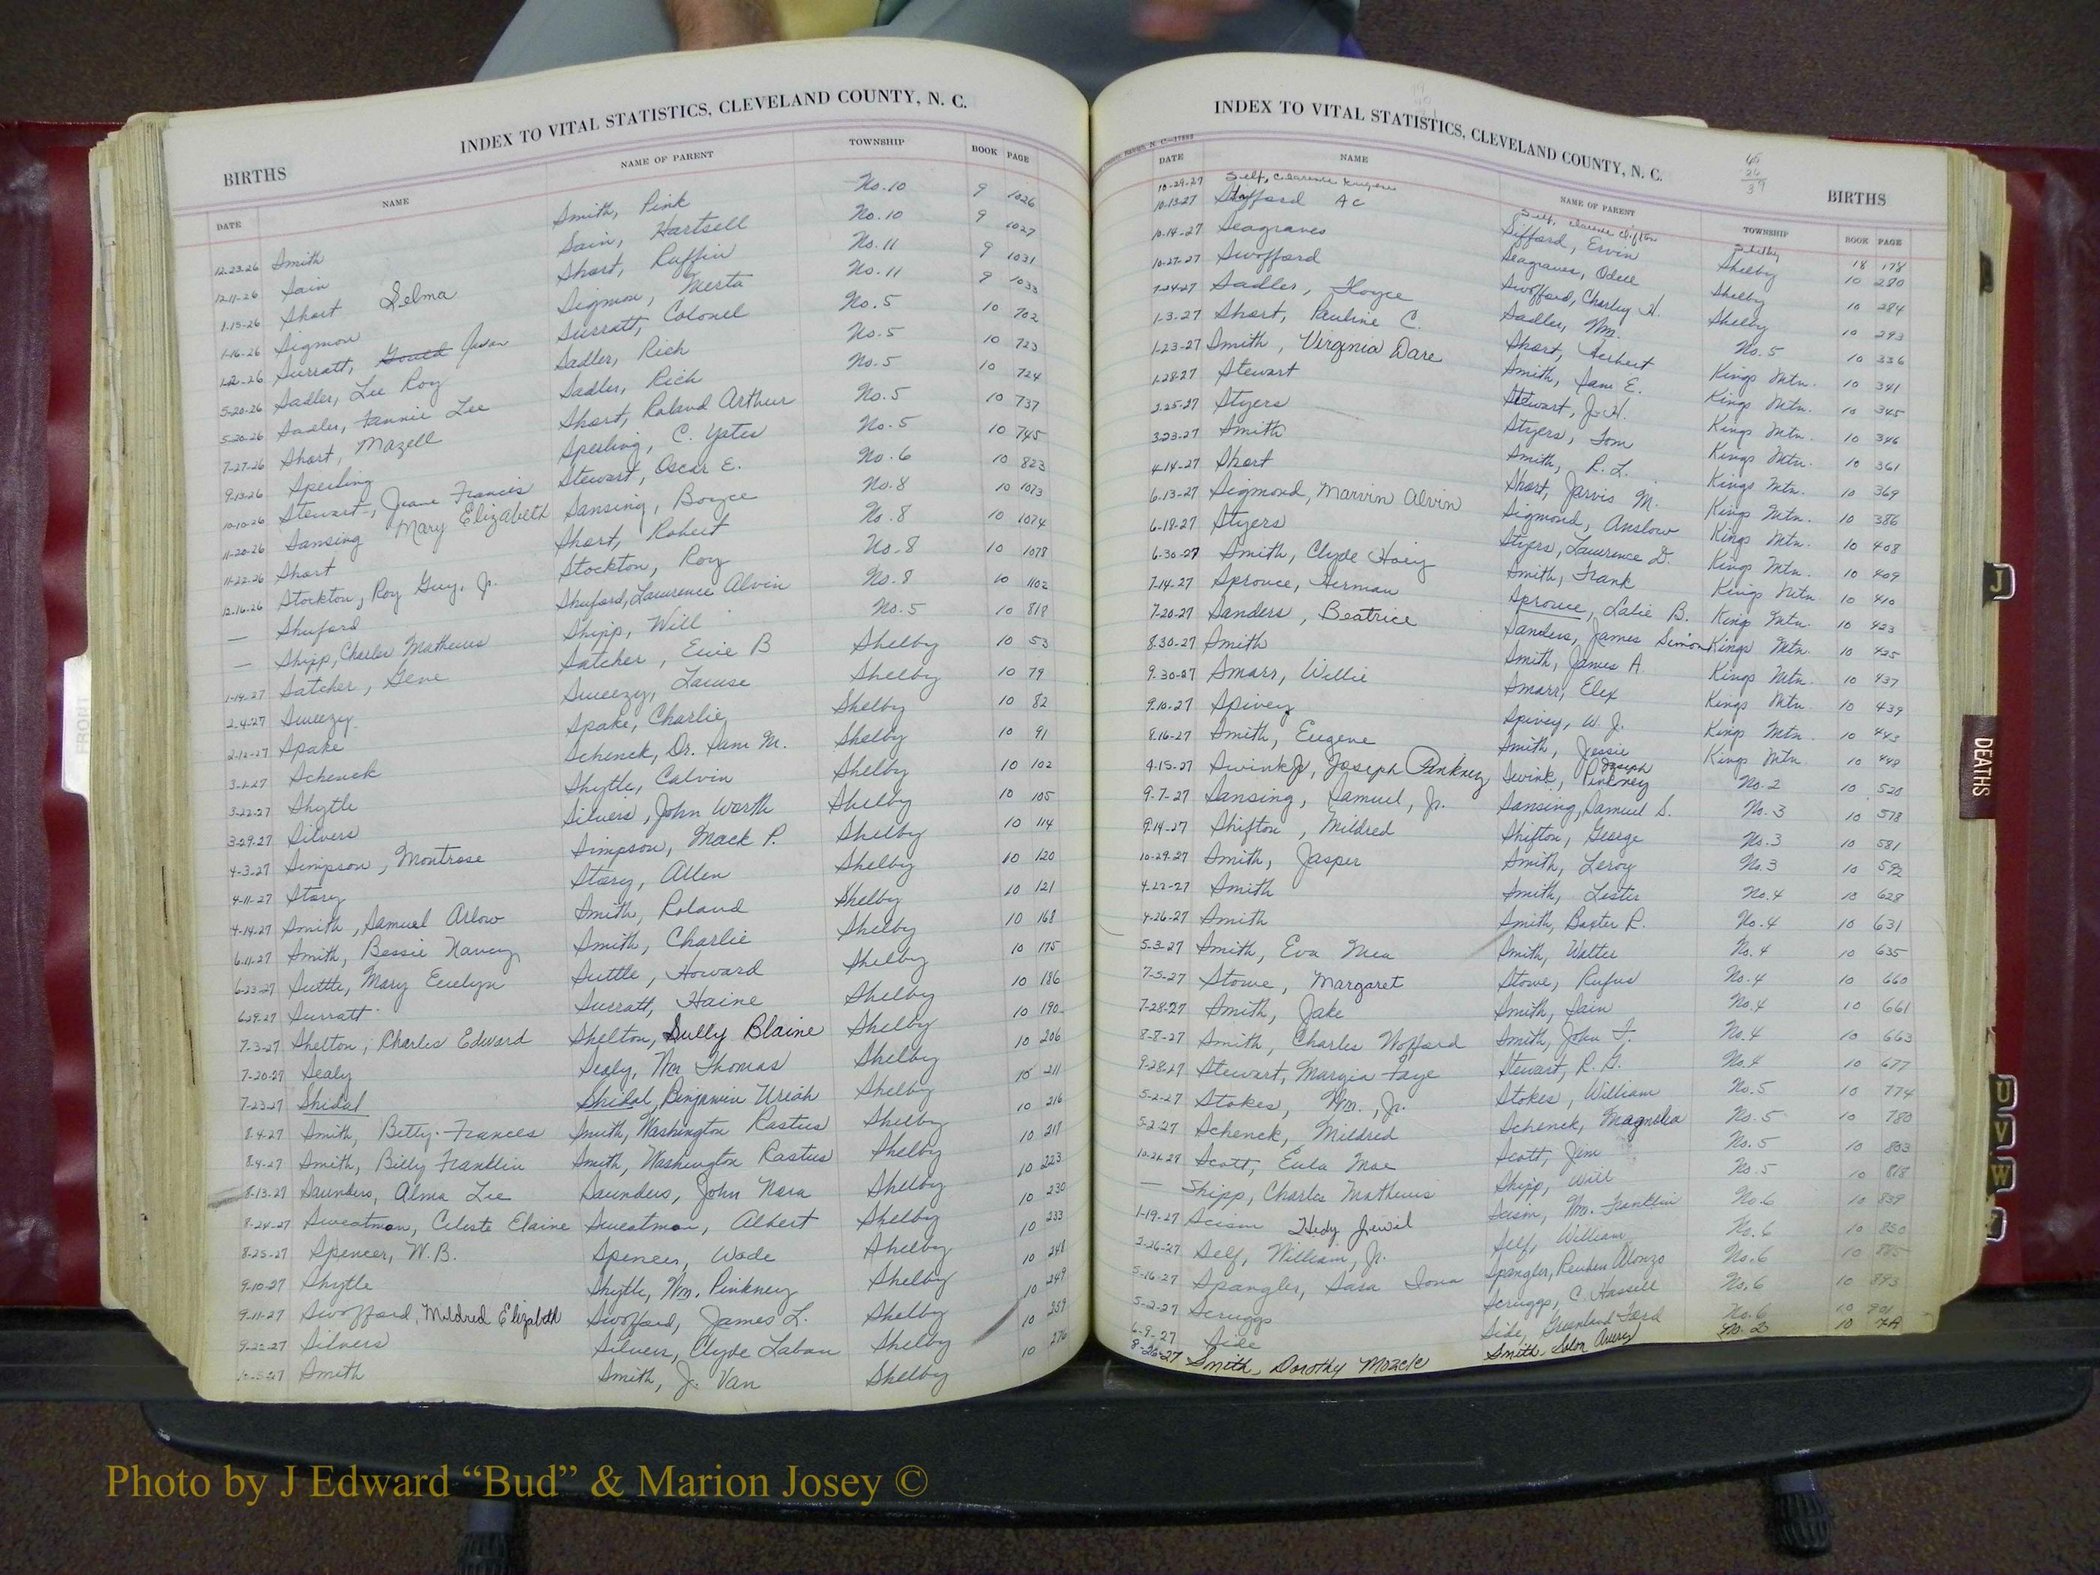 INDEX TO VITAL STATISTICS, CLEVELAND COUNTY, N. C.
BIRTHS
DATE NAME NAME OF PARENT TOWNSHIP BOOK PAGE
12-23-26 Smith Smith, Pink No. 10 9 1026
12-11-26 Sain Sain, Hartsell No. 10 9 1027
1-15-26 Short Selma Short, Ruffin No. 11 9 1031
1-16-26 Sigmon Sigmon, Merta No. 11 9 1033
1-2-26 Surratt, Gould Surratt, Colonel No. 5 10 702
5-20-26 Sadler, Lee Roy Sadler, Rich No. 5 10 723
5-20-26 Sadler, Fannie Lee Sadler, Rich No. 5 10 724
7-27-26 Short, Mazell Short, Roland Arthur No. 5 10 737
9-13-26 Sperling Sperling, C. Yates No. 5 10 745
10-10-26 Stewart, Jeane Francis Stewart, Oscar E. No. 6 10 823
11-20-26 Sansing Mary Elizabeth Sansing, Boyce No. 8 10 1073
11-22-26 Short Short, Robert No. 8 10 1074
12-16-26 Stockton, Roy Guy, Jr. Stockton, Roy No. 8 10 1078
— Shuford Shuford, Lawrence Alvin No. 8 10 1102
— Shipp, Charles Mathews Shipp, Will No. 5 10 818
1-14-27 Satcher, Gene Satcher, Evie B Shelby 10 53
2-4-27 Sweezy Sweezy, Shelby 10 79
2-12-27 Spake Spake, Charlie Shelby 10 82
3-2-27 Schenck Schenck, Dr. Sam M. Shelby 10 91
3-22-27 Shytle Shytle, Calvin Shelby 10 102
3-29-27 Silvers Silvers, John Worth Shelby 10 105
4-3-27 Simpson, Montrose Simpson, Mack P. Shelby 10 114
4-11-27 Story Story, Allen Shelby 10 120
4-14-27 Smith, Samuel Arlow Smith, Roland Shelby 10 121
6-11-27 Smith, Bessie Nancy Smith, Charlie Shelby 10 168
6-23-27 Suttle, Mary Evelyn Suttle, Howard Shelby 10 175
6-29-27 Surratt Surratt, Haine Shelby 10 186
7-3-27 Shelton, Charles Edward Shelton, Sully Blaine Shelby 10 190
7-20-27 Sealy Sealy, Wm Thomas Shelby 10 206
7-23-27 Shidal Shidal, Benjamin Uriah Shelby 10 211
8-4-27 Smith, Betty Frances Smith, Washington Rastus Shelby 10 216
8-4-27 Smith, Billy Franklin Smith, Washington Rastus Shelby 10 217
8-13-27 Saunders, Alma Lee Saunders, John Nora Shelby 10 223
8-24-27 Sweatman, Celeste Elaine Sweatman, Albert Shelby 10 230
8-25-27 Spencer, W. B. Spencer, Wade Shelby 10 233
9-10-27 Shytle Shytle, Wm. Pinkney Shelby 10 248
9-11-27 Swofford, Mildred Elizabeth Swofford, James L. Shelby 10 249
9-22-27 Silvers Silvers, Clyde Laban Shelby 10 259
10-5-27 Smith Smith, J. Van Shelby 10 276
INDEX TO VITAL STATISTICS, CLEVELAND COUNTY, N. C.
BIRTHS
DATE NAME NAME OF PARENT TOWNSHIP BOOK PAGE
10-29-27 Self, Clarence Eugene Self, Clarence Clifton Shelby 18 178
10-13-27 A C Sifford, Ervin Shelby 10 280
10-14-27 Seagraves Seagraves, Odell Shelby 10 284
10-27-27 Swofford Swofford, Charley H. Shelby 10 293
7-24-27 Sadler, Hoyce Sadler, Wm. No. 5 10 336
1-3-27 Short, Pauline C. Short, Herbert Kings Mtn. 10 341
1-23-27 Smith, Virginia Dare Smith, Sam E. Kings Mtn. 10 345
1-28-27 Stewart Stewart, J. H. Kings Mtn. 10 346
2-25-27 Styers Styers, Tom Kings Mtn. 10 361
3-23-27 Smith Smith, R. L. Kings Mtn. 10 369
4-14-27 Short Short, Jarvis M. Kings Mtn. 10 386
6-13-27 Sigmond, Marvin Alvin Sigmond, Anslow Kings Mtn. 10 408
6-18-27 Styers Styers, Lawrence D. Kings Mtn. 10 409
6-30-27 Smith, Clyde Hoey Smith, Frank Kings Mtn 10 410
7-14-27 Sprouce, Herman Sprouce, Lalie B. King Mtn. 10 423
7-20-27 Sanders, Beatrice Sanders, James Simon Kings Mtn. 10 435
8-30-27 Smith Smith, James A Kings Mtn. 10 437
9-30-27 Smarr, Willie Smarr, Elex Kings Mtn. 10 439
9-10-27 Spivey Spivey, W. J. Kings Mtn. 10 443
8-16-27 Smith, Eugene Smith, Jessie Kings Mtn. 10 448
4-15-27 Swink Jr, Joseph Pinkney Swink, Joseph Pinkney No. 2 10 520
9-7-27 Sansing, Samuel, Jr. Sansing, Samuel S. No. 3 10 578
9-14-27 Shifton, Mildred Shifton, George No. 3 10 581
10-29-27 Smith, Jasper Smith, Leroy No. 3 10 592
4-22-27 Smith Smith, Lester No. 4 10 628
4-26-27 Smith Smith, Baxter R. No. 4 10 631
5-3-27 Smith, Eva Mea Smith, Walter No. 4 10 635
7-5-27 Stowe, Margaret Stowe, Rufus No. 4 10 660
7-28-27 Smith, Jake Smith, Sain No. 4 10 661
8-8-27 Smith, Charles Wofford Smith, John F. No. 4 10 663
9-28-27 Stewart, Margia Faye Stewart, R. G. No. 4 10 677
5-2-27 Stokes, Wm., Jr. Stokes, William No. 5 10 774
5-2-27 Schenck, Mildred Schenck, Magnolia No. 5 10 780
10-26-27 Scott, Eula Mae Scott, Jim No. 5 10 803
— Shipp, Charles Mathews Shipp, Will No. 5 10 818
1-19-27 Scism Hedy Jewil Scism, Wm. Franklin No. 6 10 839
2-26-27 Self, William, Jr. Self, William No. 6 10 850
5-16-27 Spangler, Sara Iona Spangler, Reuben Alonzo No. 6 10 885
5-2-27 Scruggs Scruggs, C. Hassell No. 6 10 893
6-9-27 Side Side, Greenland Ford No. 6 10 901
8-26-27 Smith, Dorothy Mozelle Smith, Solon Avery No. 2 10
45
J
DEATHS
U
V
W
FRONT
Photo by J Edward “Bud” & Marion Josey ©